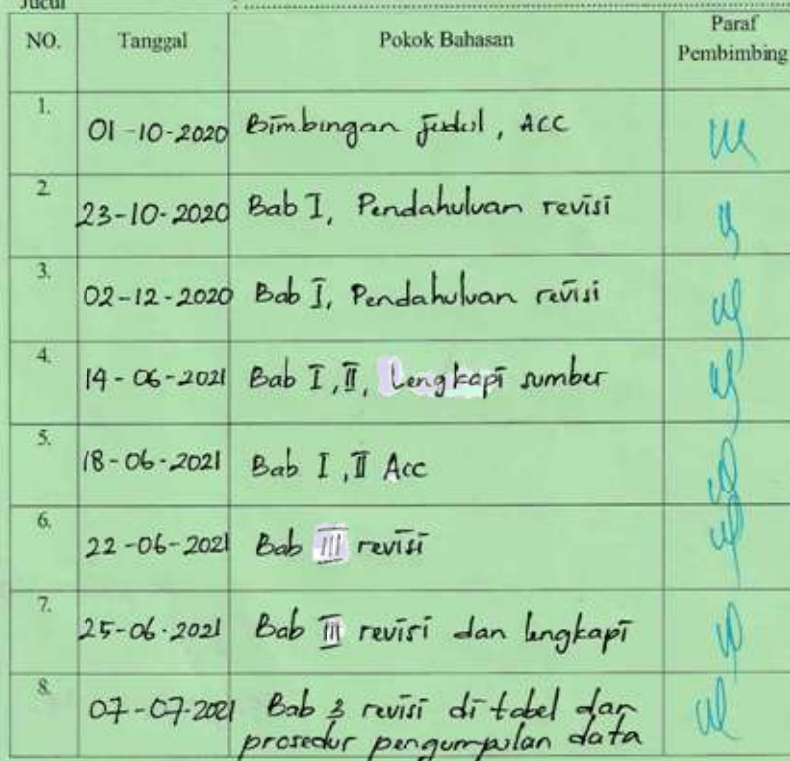 Judul : ..........
NO. Tanggal Pokok Bahasan Paraf Pembimbing
1. 01-10-2020 Bimbingan judul, ACC
2. 23-10-2020 Bab I, Pendahuluan revisi
3. 02-12-2020 Bab I, Pendahuluan revisi
4. 14-06-2021 Bab I, II, Lengkapi sumber
5. 18-06-2021 Bab I, II Acc
6. 22-06-2021 Bab III revisi
7. 25-06-2021 Bab III revisi dan lengkapi
8. 07-07-2021 Bab 3 revisi di tabel dan
prosedur pengumpulan data